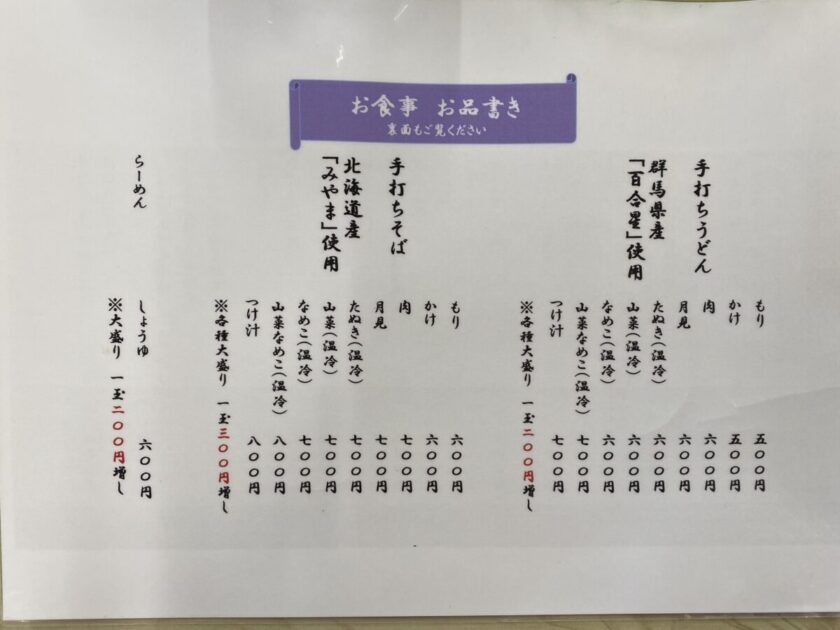 お食事 お品書き
裏面もご覧ください
手打ちうどん
群馬県産
「百合星」使用
もり 五〇〇円
かけ 五〇〇円
肉 六〇〇円
月見 六〇〇円
たぬき(温冷) 六〇〇円
山菜(温冷) 六〇〇円
なめこ(温冷) 六〇〇円
山菜なめこ(温冷) 七〇〇円
つけ汁 七〇〇円
※各種大盛り 一玉二〇〇円増し
手打ちそば
北海道産
「みやま」使用
もり 六〇〇円
かけ 六〇〇円
肉 七〇〇円
月見 七〇〇円
たぬき(温冷) 七〇〇円
山菜(温冷) 七〇〇円
なめこ(温冷) 七〇〇円
山菜なめこ(温冷) 八〇〇円
つけ汁 八〇〇円
※各種大盛り 一玉三〇〇円増し
らーめん
しょうゆ 六〇〇円
※大盛り 一玉二〇〇円増し